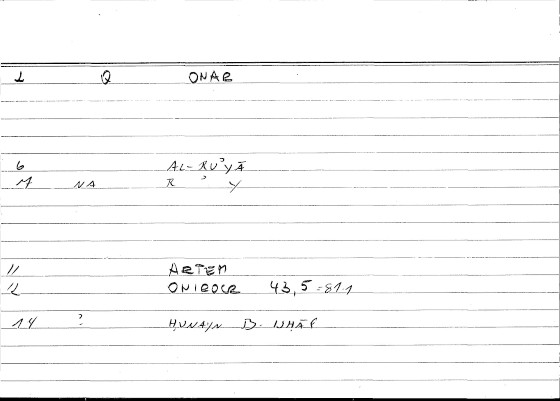 1 Q ONAR
6 AL-RUʾYĀ
17 NA R ʾ Y
11 ARTEM
12 ONIROCR 43,5 = 81,1
14 ? ḤUNAYN B. ISḤĀQ